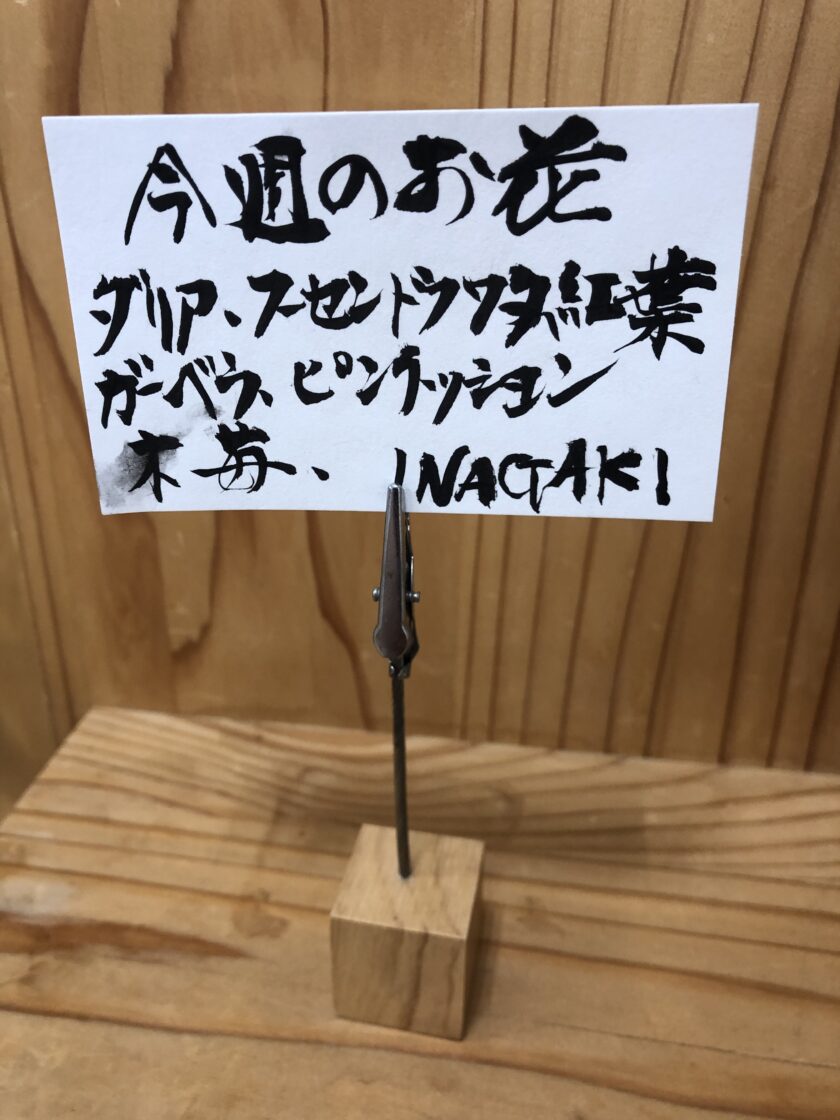 今週のお花
ダリア、スーセンドウツタ゛紅葉
ガーベラ、ピンクッション
木苺、 INAGAKI